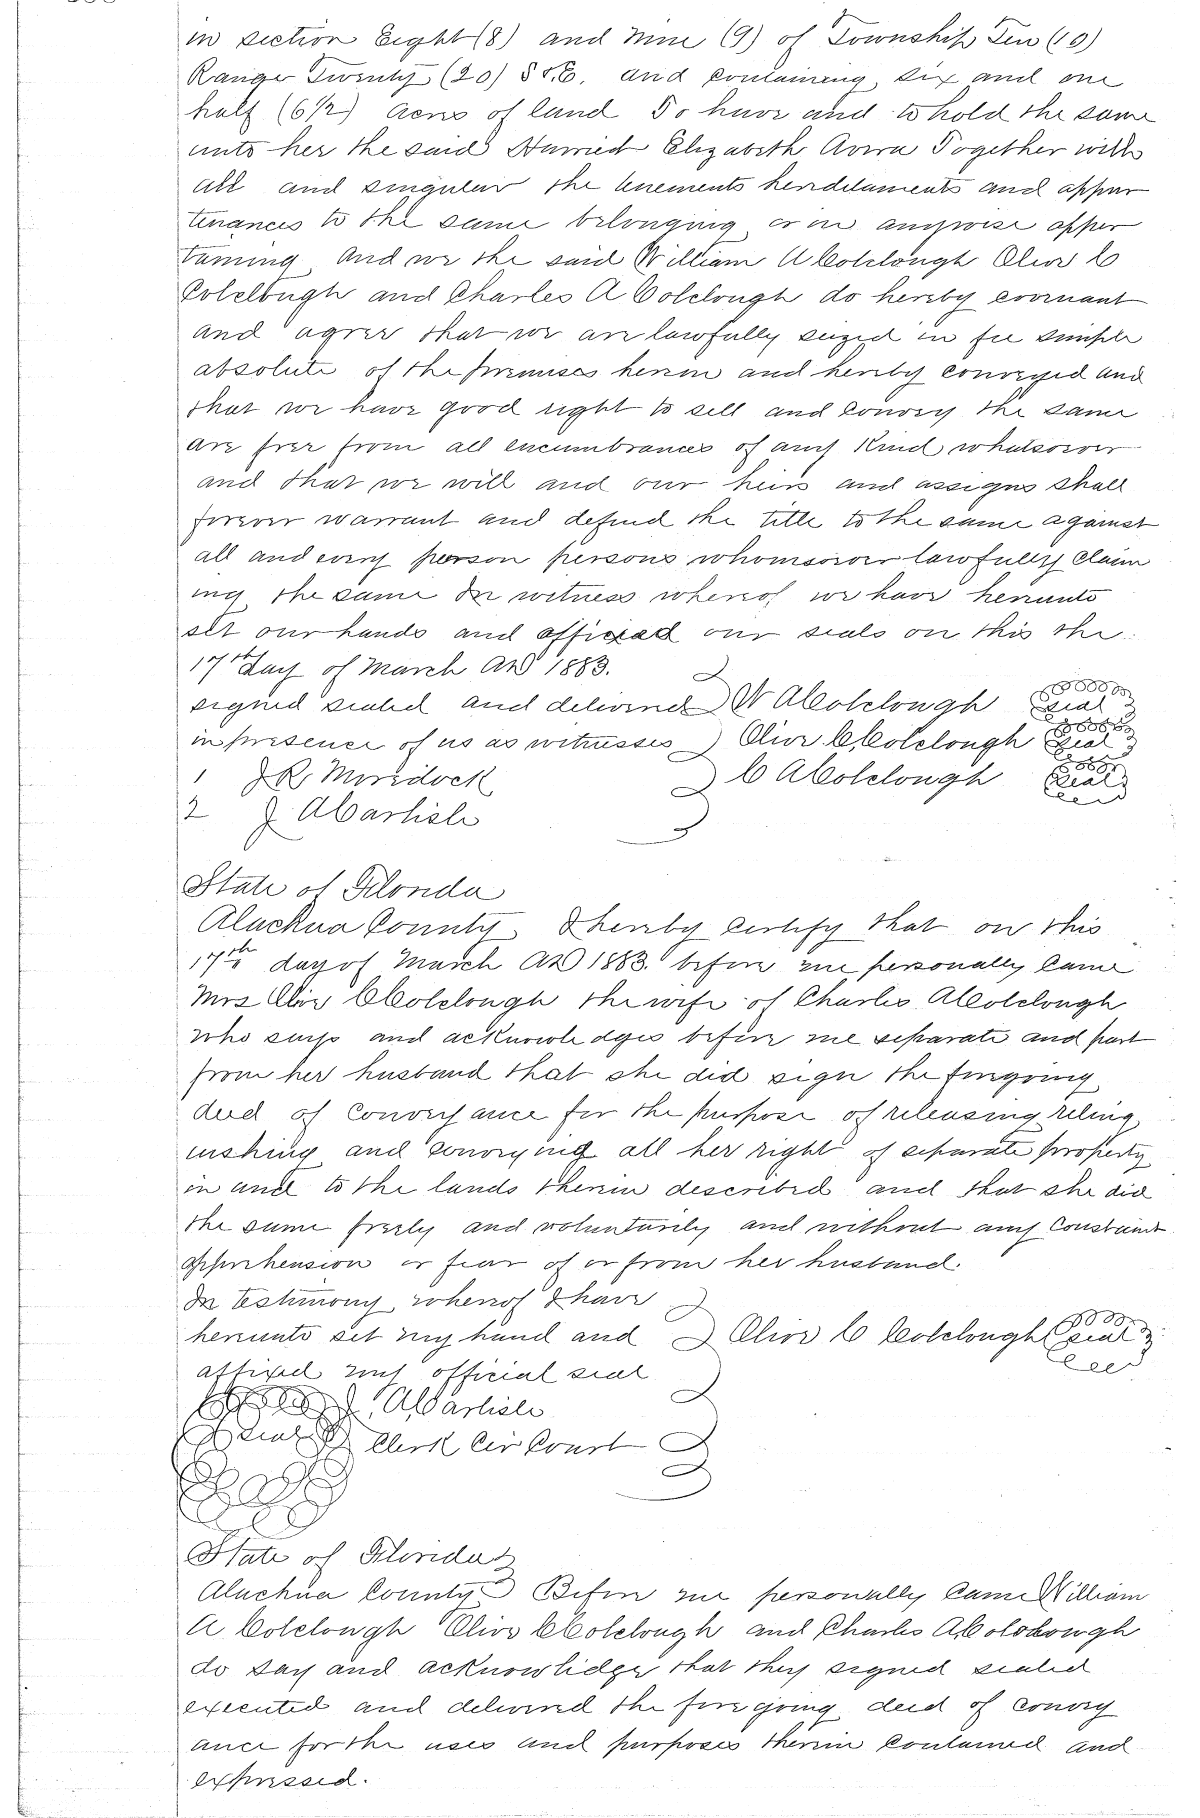 in section Eight (8) and Nine (9) of Township Ten (10)
Range Twenty (20) S & E. and containing six and one
half (6 1/2) acres of land To have and to hold the same
unto her the said Harried Elizabeth Avera Together with
all and singular the tenements hereditaments and appur
tenances to the same belonging or in anywise apper
taining And we the said William A Colclough Olive C
Colclough and Charles A Colclough do hereby covenant
and agree that we are lawfully seized in fee simple
absolute of the premises herein and hereby conveyed and
that we have good right to sell and convey the same
are free from all encumbrances of any Kind whatsoever
and that we will and our heirs and assigns shall
forever warrant and defend the title to the same against
all and every person persons whomsoever lawfully claim
ing the same In witness whereof we have hereunto
set our hands and our seals on this the
17th day of March AD 1883.
signed sealed and delivered W A Colclough seal
in presence of us as witnesses Olive C Colclough seal
1 J R Murdock C A Colclough seal
2 J A Carlisle
State of Florida
Alachua County I hereby certify that on this
17th day of March AD 1883 before me personally came
Mrs Olive C Colclough the wife of Charles A Colclough
who says and acknowledges before me separate and part
from her husband that she did sign the foregoing
deed of conveyance for the purpose of releasing relinq
uishing and conveying all her right of separate property
in and to the lands therein described and that she did
the same freely and voluntarily and without any Constraint
apprehension or fear of or from her husband.
In testimony whereof I have
hereunto set my hand and Olive C Colclough seal
affixed my official seal
J. A. Carlisle
seal Clerk Cir Court
State of Florida
Alachua County Before me personally came William
A Colclough Olive C Colclough and Charles A Colclough
do say and acknowledge that they signed sealed
executed and delivered the foregoing deed of convey
ance for the uses and purposes therein contained and
expressed.